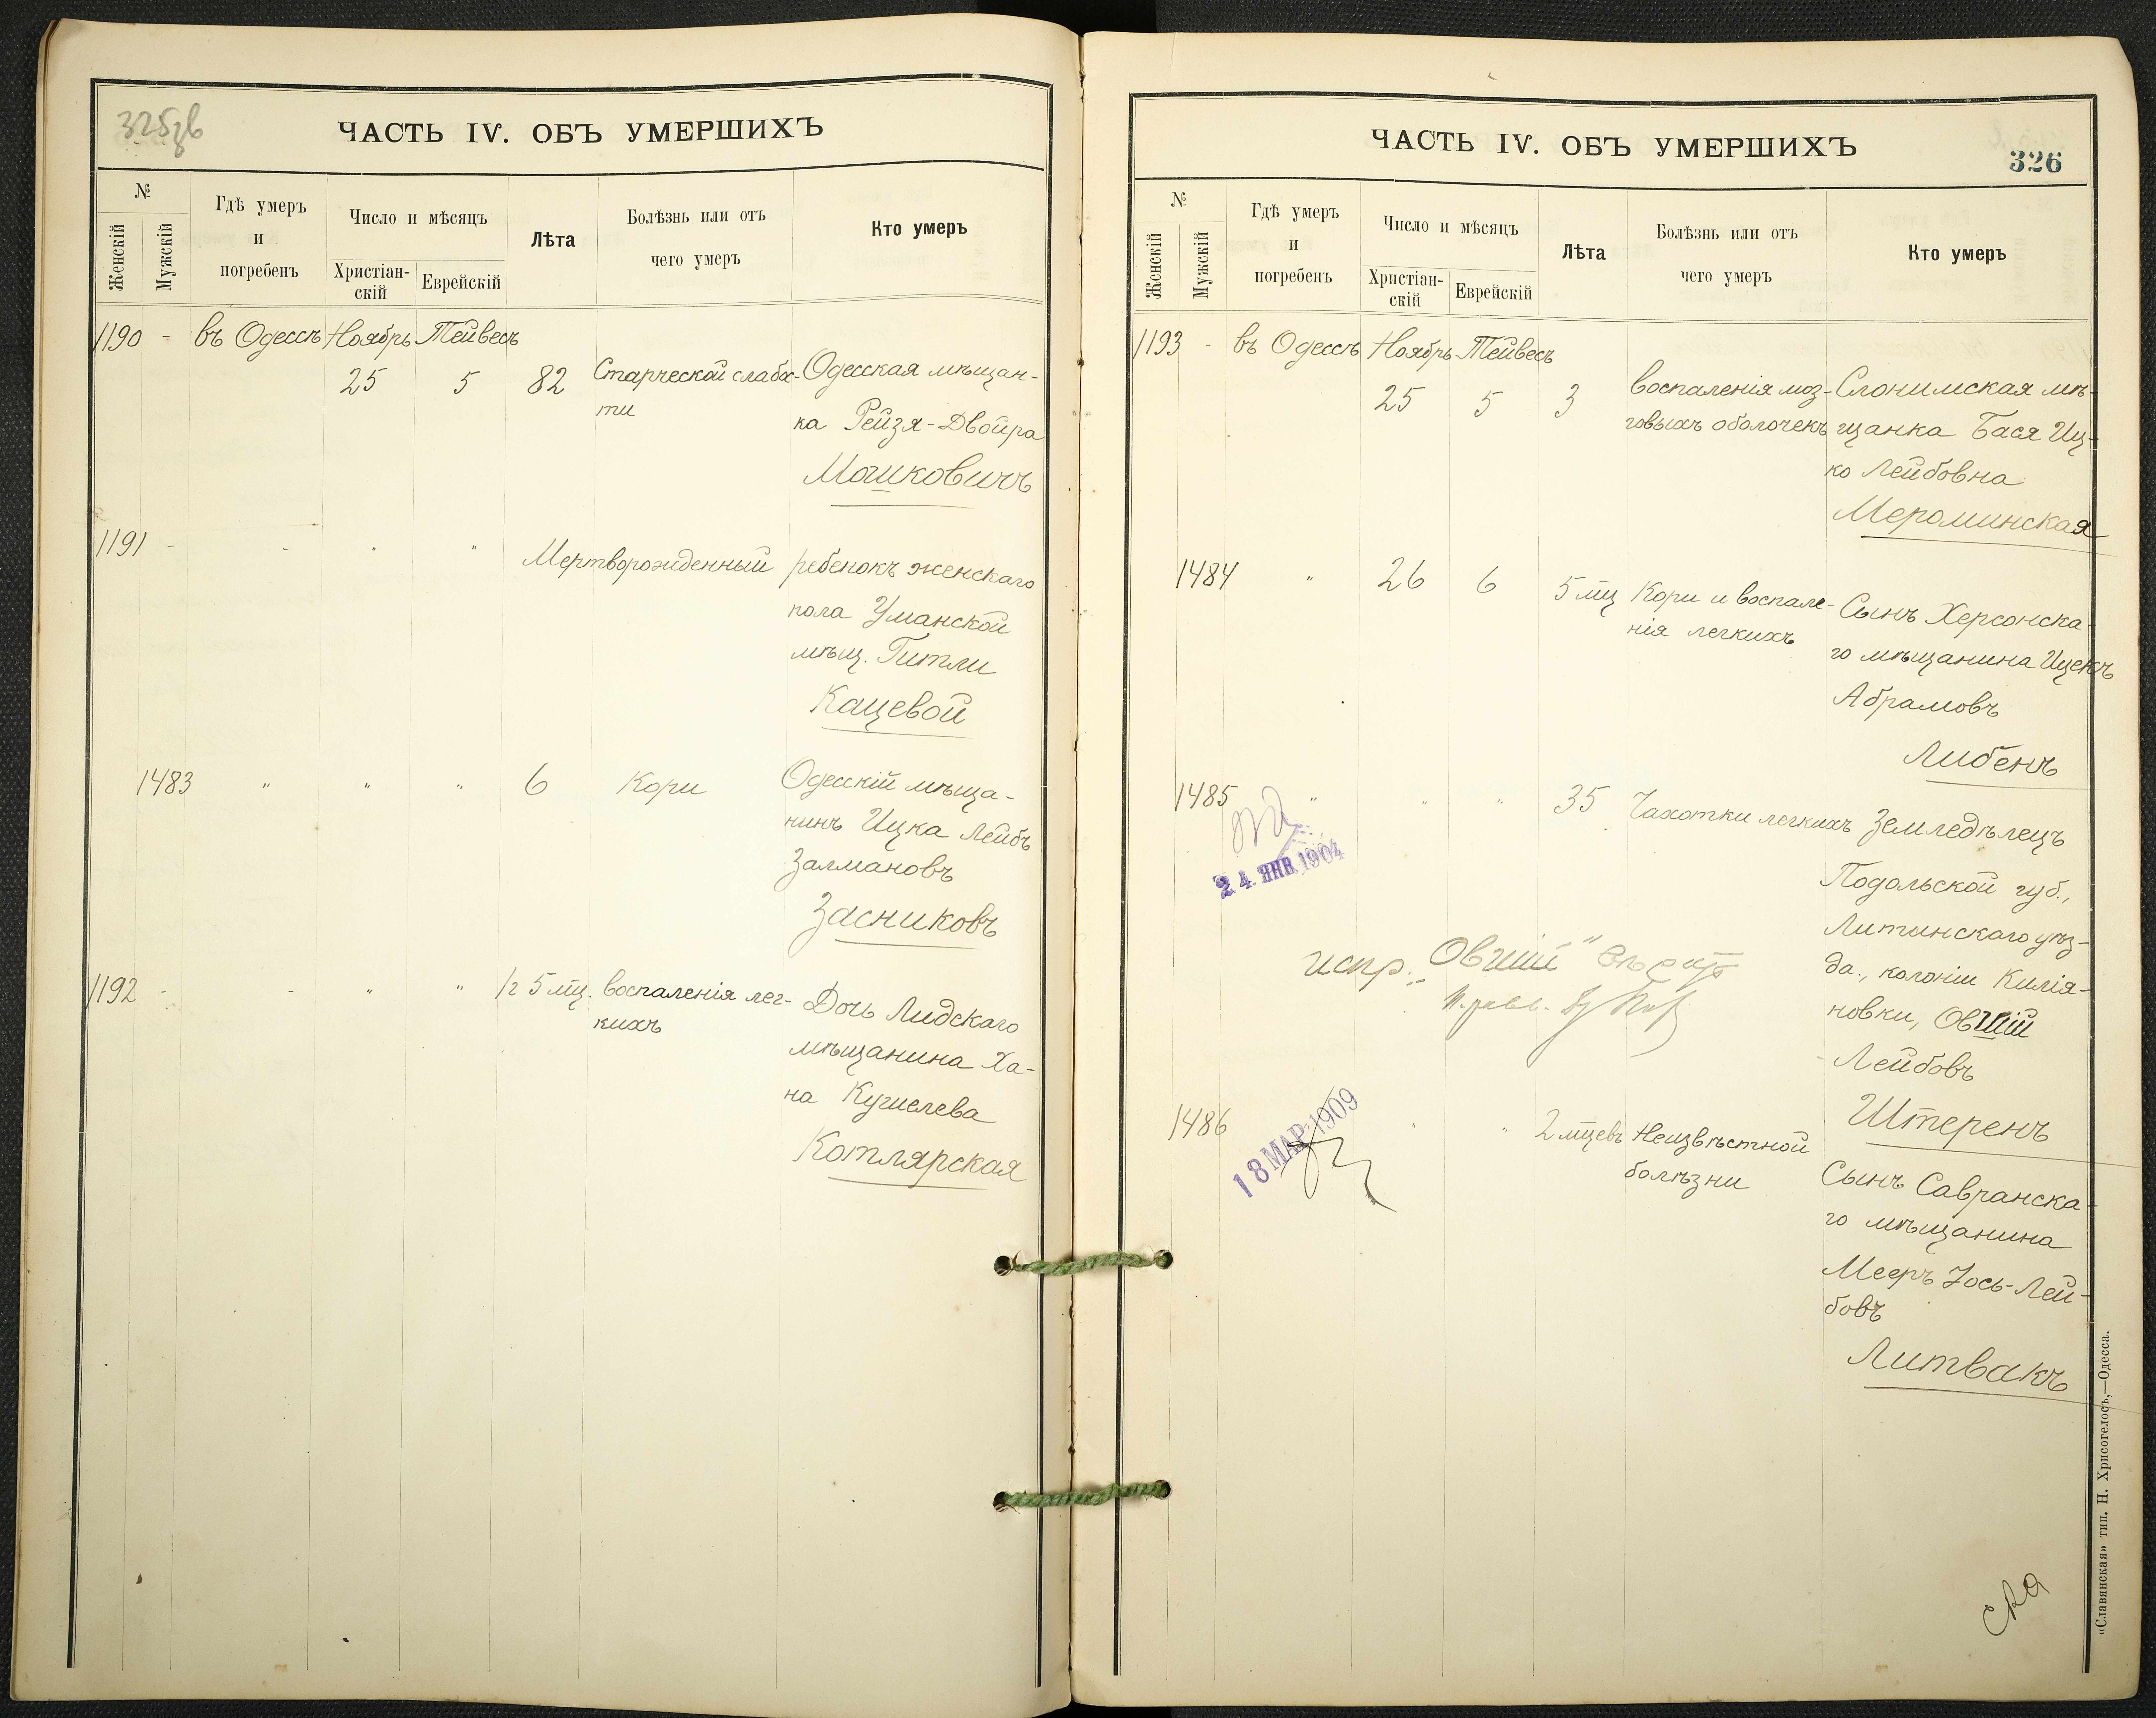 ЧАСТЬ IV. ОБЪ УМЕРШИХЪ
№
Женскій
Мужскій
Гдѣ умеръ
и
погребенъ
Число и мѣсяцъ
Христіан-
скій
Еврейскій
Лѣта
Болѣзнь или отъ
чего умеръ
Кто умеръ
1190 - въ Одессѣ Ноябрь Тейвесъ
25 5 82 Старческой слабос-
ти
Одесская мѣщан-
ка Рейзя-Двойра
Машковичъ
1191 - - " " Мертворожденный ребенокъ женскаго
пола Уманской
мѣщ. Гитли
Кацевой
1483 " " " 6 Кори Одесскій мѣща-
нинъ Ицка Лейбъ
Залмановъ
Засниковъ
1192 - - " " 1г 5 мц. воспаленія лег-
кихъ
Дочь Лидскаго
мѣщанина Ха-
на Кушелева
Котлярская
ЧАСТЬ IV. ОБЪ УМЕРШИХЪ
326
№
Женскій
Мужскій
Гдѣ умеръ
и
погребенъ
Число и мѣсяцъ
Христіан-
скій
Еврейскій
Лѣта
Болѣзнь или отъ
чего умеръ
Кто умеръ
1193 - въ Одессѣ Ноябрь Тейвесъ
25 5 3 воспаленія моз-
говыхъ оболочекъ
Слонимская мѣ-
щанка Бася Иц-
ко Лейбовна
Мероминская
1484 " 26 6 5 мц Кори и воспале-
нія легкихъ
Сынъ Херсонска-
го мѣщанина Ицекъ
Абрамовъ
Либенъ
1485 " " " 35 Чахотки легкихъ Земледѣлецъ
Подольской губ.,
Литинскаго уѣз-
да., колоніи Килія-
новки, Овшій
Лейбовъ
Штеренъ
24. ЯНВ. 1904
испр. "Овшій"
1486 " " 2 мцевъ Неизвѣстной
болѣзни
Сынъ Савранска-
го мѣщанина
Мееръ Іось-Лей-
бовъ
Литвакъ
18 МАР. 1909
«Славянская» тип. Н. Хрисогелосъ,—Одесса.